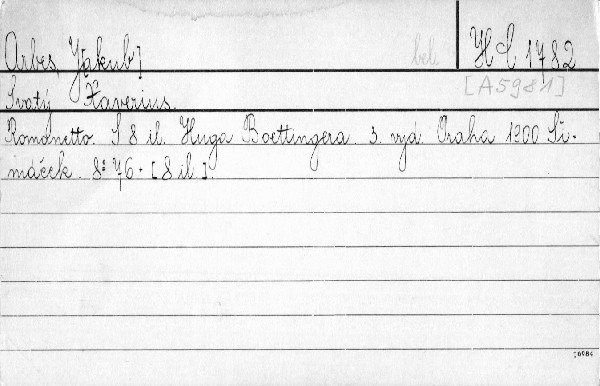 Arbes, J[akub] bel. H C 1782
[A5981]
Svatý Xaverius.
Romanetto. S 8 il. Huga Boettingera. 3. vyd. Praha 1900 Ši-
máček. 8° 76 + [8 il.].